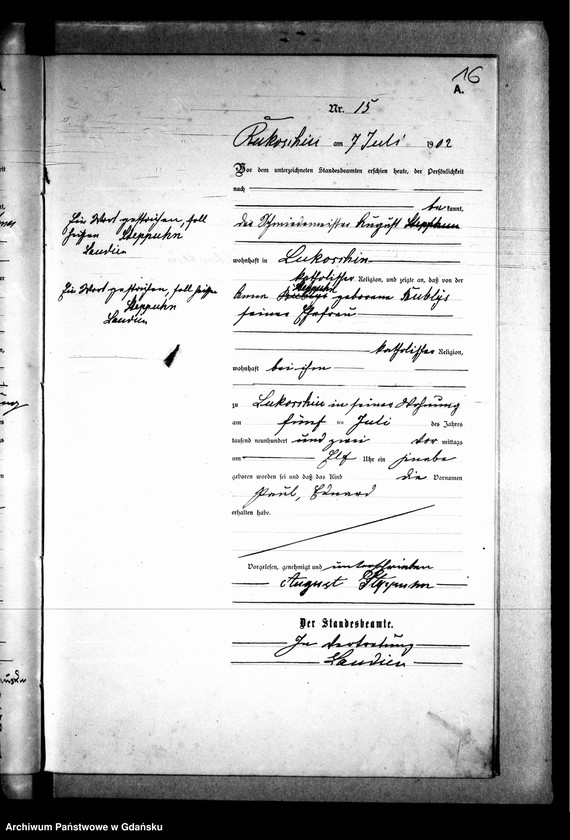 16
A.
Nr. 15
Rukoschin am 7 Juli 1902
Vor dem unterzeichneten Standesbeamten erschien heute, der Persönlichkeit
nach
bekannt,
der Schmiedemeister August Steppuhn
wohnhaft in Lukoschin
katholischer Religion, und zeigte an, daß von der
Steppuhn
Anna Kublys geborene Kublys
seiner Ehefrau
katholischer Religion,
wohnhaft bei ihm
zu Lukoschin in seiner Wohnung
am fünften Juli des Jahres
tausend neunhundert und zwei Vormittags
um Elf Uhr ein Knabe
geboren worden sei und daß das Kind die Vornamen
Paul, Eduard
erhalten habe.
Vorgelesen, genehmigt und unterschrieben
August Steppuhn
Der Standesbeamte.
In Vertretung
Landien
Ein Wort gestrichen, soll
heißen Steppuhn
Landien
Ein Wort gestrichen, soll heißen
Steppuhn
Landien
Archiwum Państwowe w Gdańsku